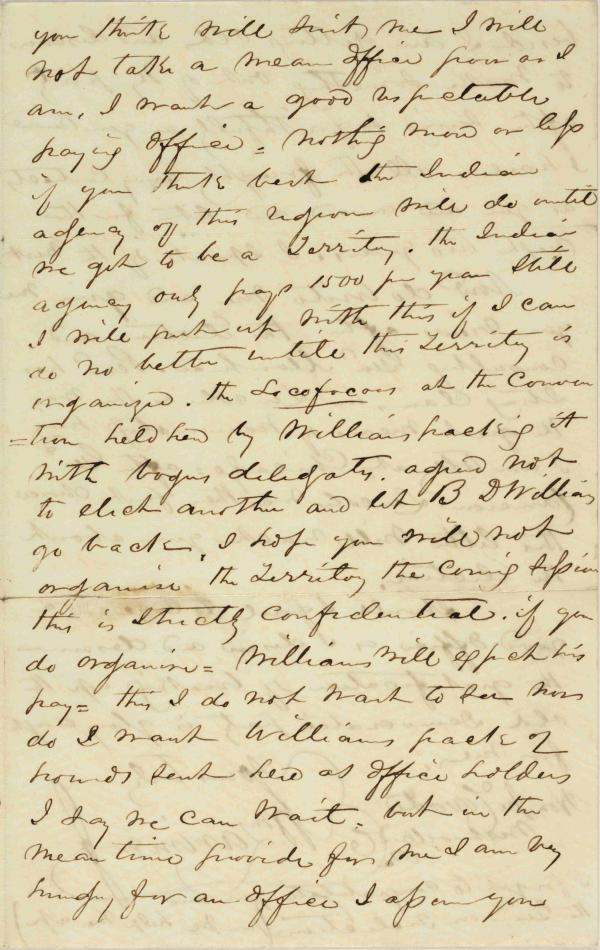 you think will suit me I will
not take a mean office poor as I
am, I want a good respectable
paying office = nothing more or less
if you think best the Indian
agency of this region will do until
we get to be a Territory. the Indian
agency only pays 1500 per year Still
I will put up with this if I can
do no better untill this Territory is
organized. the Locofocos at the Conven
=tion held here by Williams packing it
with bogus delegates. agreed not
to elect another and let B D Williams
go back, I hope you will not
organise the Territory the coming Session
this is Strictly Confidential. if you
do organise = Williams will expect his
pay = this I do not want to see nor
do I want Williams pack of
hounds sent here as office holders
I say we can wait. but in the
mean time provide for me I am very
hungry for an office I assure you